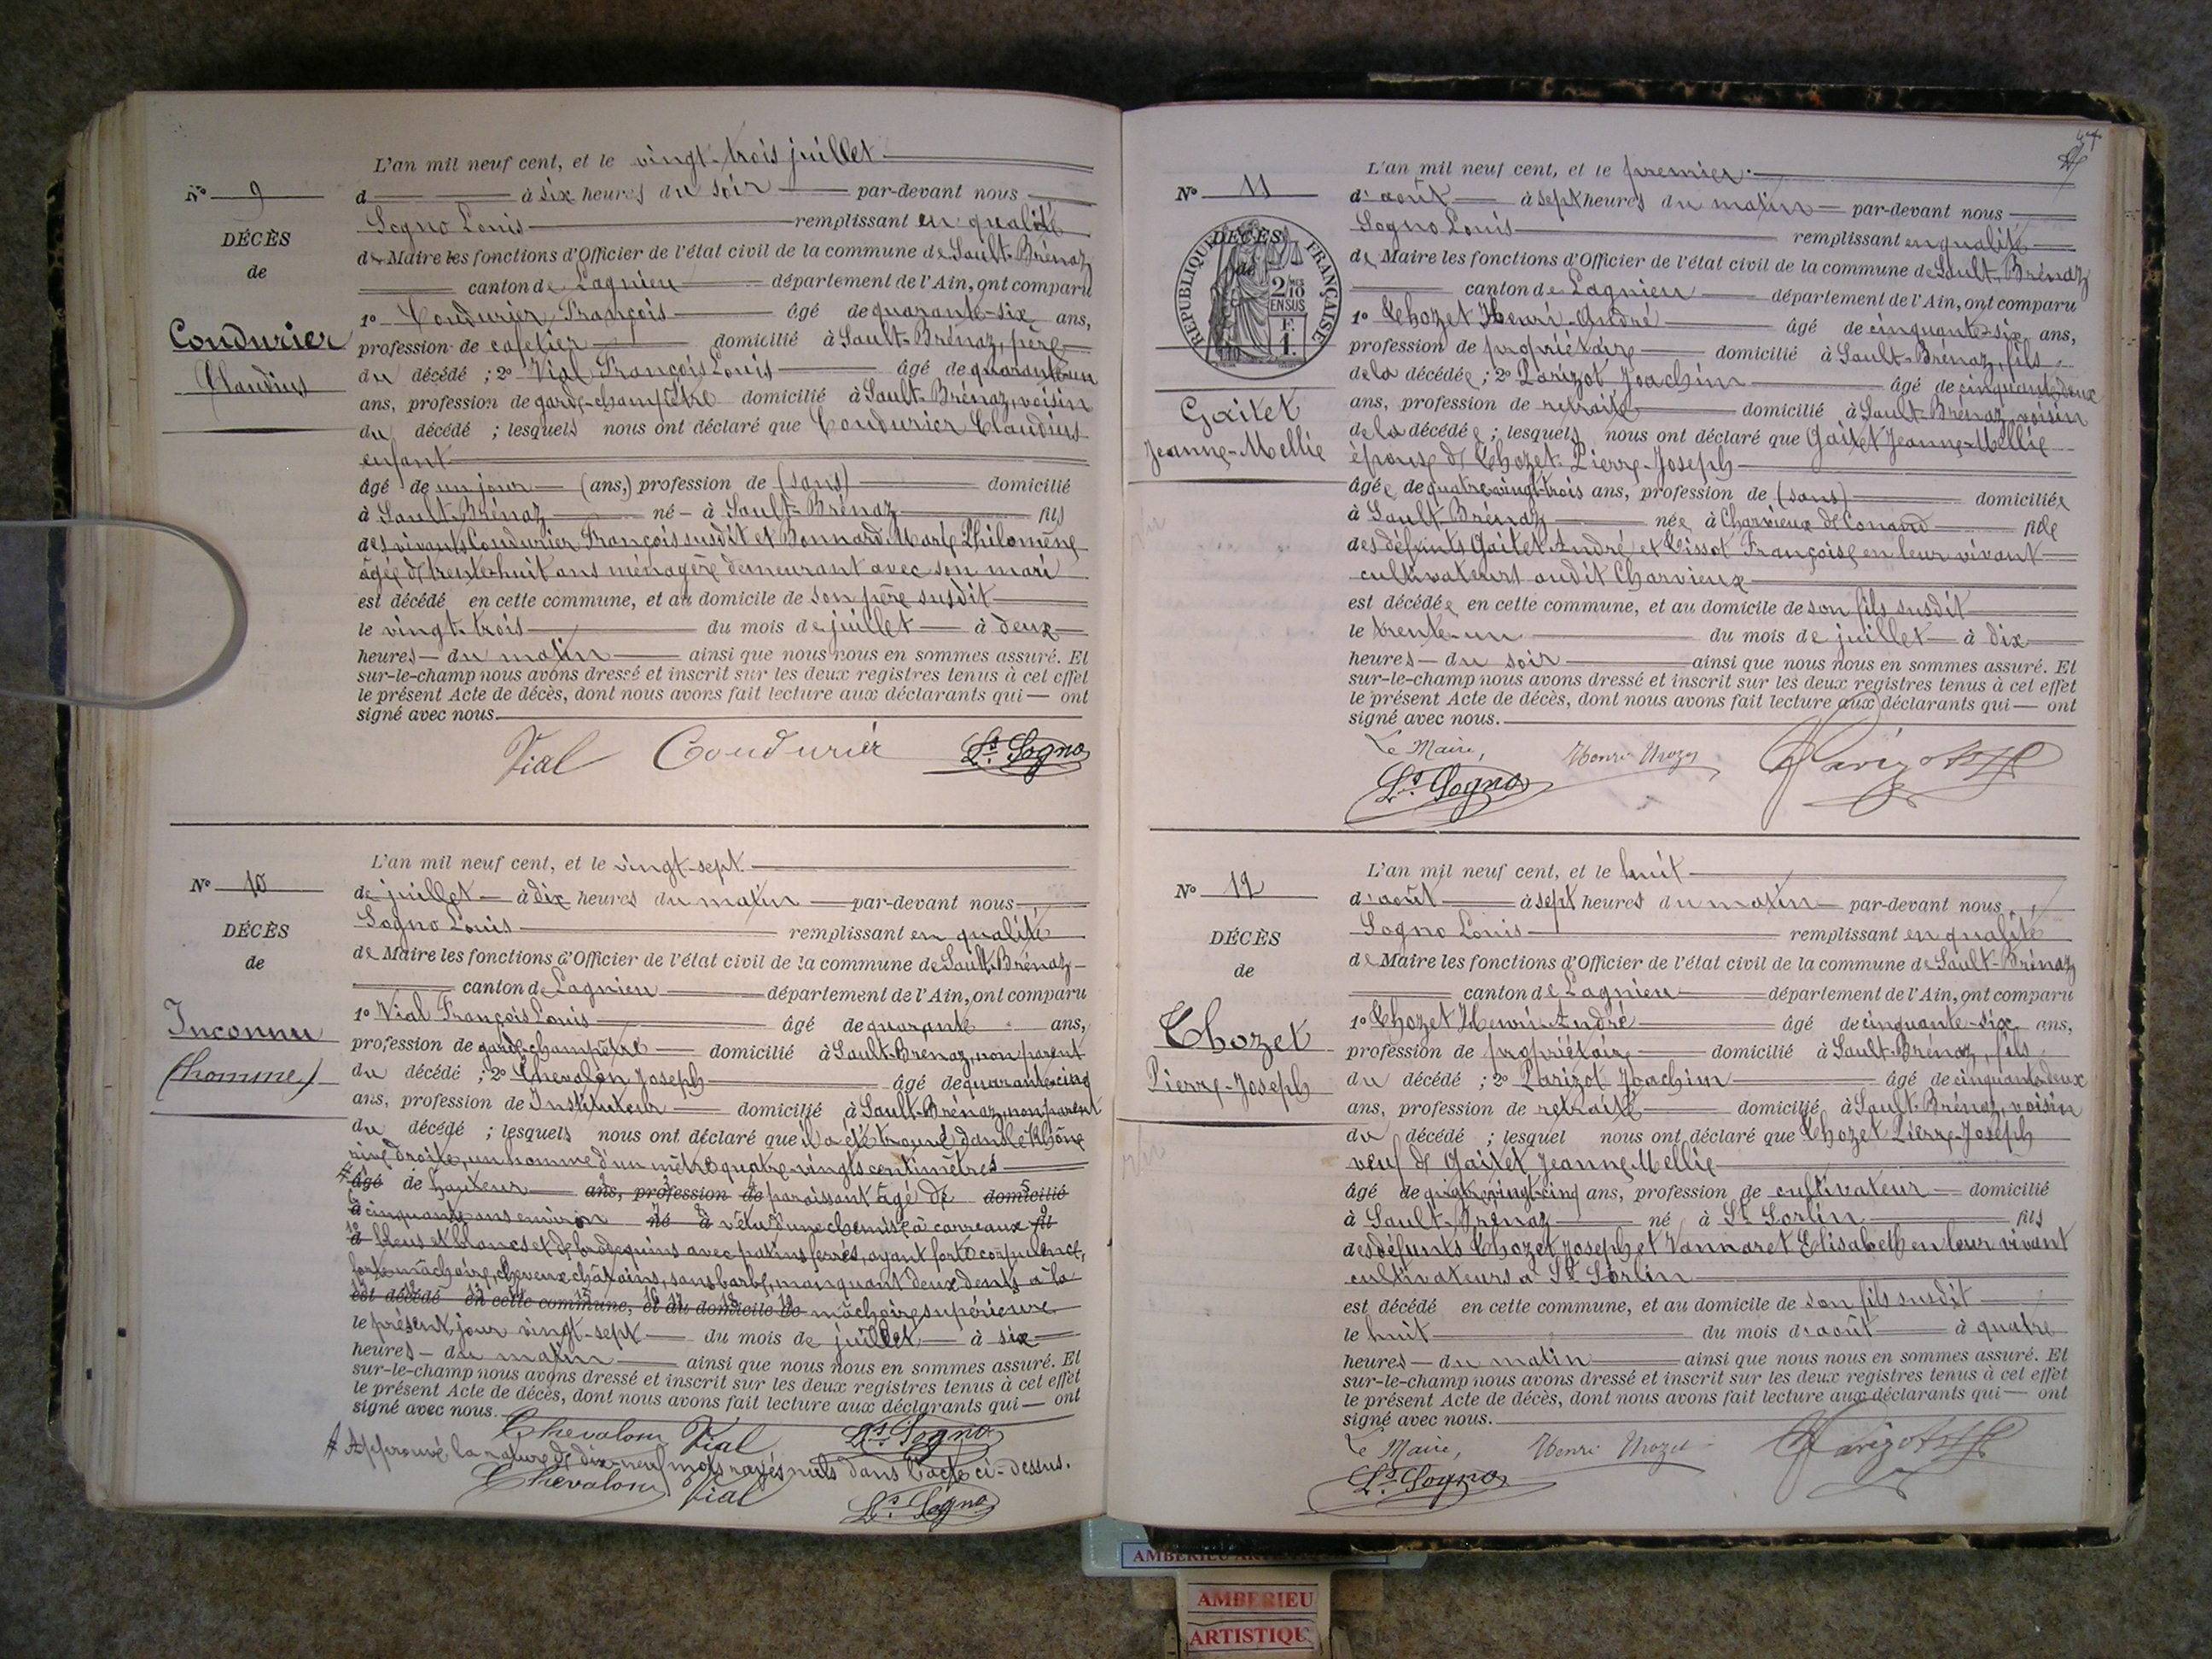 L'an mil neuf cent, et le vingt-trois juillet
N° 9
d à six heures du soir par-devant nous
DÉCÈS
de
Condurier
Claudius
Sogno Louis remplissant en qualité
de Maire les fonctions d'Officier de l'état civil de la commune de Sault-Brénaz
canton de Lagnieu département de l'Ain, ont comparu
1° Condurier François âgé de quarante-six ans,
profession de cafetier domicilié à Sault-Brénaz, père
du décédé ; 2° Vial François Louis âgé de quarante-un
ans, profession de garde-champêtre domicilié à Sault-Brénaz, voisin
du décédé ; lesquels nous ont déclaré que Condurier Claudius
enfant
âgé de un jour (ans,) profession de (sans) domicilié
à Sault-Brénaz né à Sault-Brénaz fils
des vivants Condurier François susdit et Bonnard Marie Philomène
âgée de trente-huit ans ménagère demeurant avec son mari
est décédé en cette commune, et au domicile de son père susdit
le vingt-trois du mois de juillet à deux
heures du matin ainsi que nous nous en sommes assuré. Et
sur-le-champ nous avons dressé et inscrit sur les deux registres tenus à cet effet
le présent Acte de décès, dont nous avons fait lecture aux déclarants qui ont
signé avec nous.
Vial Condurier Ls. Sogno
L'an mil neuf cent, et le vingt-sept
N° 10
de juillet à dix heures du matin par-devant nous
DÉCÈS
de
Inconnu
(homme)
Sogno Louis remplissant en qualité
de Maire les fonctions d'Officier de l'état civil de la commune de Sault-Brénaz
canton de Lagnieu département de l'Ain, ont comparu
1° Vial François Louis âgé de quarante ans,
profession de garde-champêtre domicilié à Sault-Brénaz, non parent
du décédé ; 2° Chevalon Joseph âgé de quarante-cinq
ans, profession de Instituteur domicilié à Sault-Brénaz, non parent
du décédé ; lesquels nous ont déclaré que il a été trouvé dans le Rhône
rive droite, un homme d'un mètre quatre-vingts centimètres
# âgé de hauteur ans, profession de paraissant âgé de domicilié
à cinquante ans environ né à vêtu d'une chemise à carreaux fil
à bleus et blancs et de brodequins avec patins ferrés, ayant forte corpulence,
forte mâchoire, cheveux châtains, sans barbe, manquant deux dents à la
est décédé en cette commune, et au domicile de mâchoire supérieure
le présent jour vingt-sept du mois de juillet à six
heures du matin ainsi que nous nous en sommes assuré. Et
sur-le-champ nous avons dressé et inscrit sur les deux registres tenus à cet effet
le présent Acte de décès, dont nous avons fait lecture aux déclarants qui ont
signé avec nous.
Chevalon Vial Ls. Sogno
# Approuvé la rature de dix-neuf mots rayés nuls dans l'acte ci-dessus.
Chevalon Vial Ls. Sogno
L'an mil neuf cent, et le premier
N° 11
d'août à sept heures du matin par-devant nous
DÉCÈS
de
RÉPUBLIQUE FRANÇAISE
2/10 EN SUS
F. 1.
Gaitet
Jeanne-Mellie
Sogno Louis remplissant en qualité
de Maire les fonctions d'Officier de l'état civil de la commune de Sault-Brénaz
canton de Lagnieu département de l'Ain, ont comparu
1° Chozet Henri-André âgé de cinquante-six ans,
profession de propriétaire domicilié à Sault-Brénaz, fils
de la décédée ; 2° Parizot Joachim âgé de cinquante-deux
ans, profession de retraité domicilié à Sault-Brénaz, voisin
de la décédée ; lesquels nous ont déclaré que Gaitet Jeanne-Mellie
épouse de Chozet Pierre-Joseph
âgée de quatre-vingt-trois ans, profession de (sans) domiciliée
à Sault-Brénaz née à Charvieux de Conand fille
des défunts Gaitet André et Tissot Françoise en leur vivant
cultivateurs audit Charvieux
est décédée en cette commune, et au domicile de son fils susdit
le trente-un du mois de juillet à dix
heures du soir ainsi que nous nous en sommes assuré. Et
sur-le-champ nous avons dressé et inscrit sur les deux registres tenus à cet effet
le présent Acte de décès, dont nous avons fait lecture aux déclarants qui ont
signé avec nous.
Le Maire, Henri Chozet Parizot
Ls. Sogno
L'an mil neuf cent, et le huit
N° 12
d'août à sept heures du matin par-devant nous
DÉCÈS
de
Chozet
Pierre-Joseph
Sogno Louis remplissant en qualité
de Maire les fonctions d'Officier de l'état civil de la commune de Sault-Brénaz
canton de Lagnieu département de l'Ain, ont comparu
1° Chozet Henri-André âgé de cinquante-six ans,
profession de propriétaire domicilié à Sault-Brénaz, fils
du décédé ; 2° Parizot Joachim âgé de cinquante-deux
ans, profession de retraité domicilié à Sault-Brénaz, voisin
du décédé ; lesquel nous ont déclaré que Chozet Pierre-Joseph
veuf de Gaitet Jeanne Mellie
âgé de quatre-vingt-cinq ans, profession de cultivateur domicilié
à Sault-Brénaz né à St Sorlin fils
des défunts Chozet Joseph et Vannaret Elisabeth en leur vivant
cultivateurs à St Sorlin
est décédé en cette commune, et au domicile de son fils susdit
le huit du mois d'août à quatre
heures du matin ainsi que nous nous en sommes assuré. Et
sur-le-champ nous avons dressé et inscrit sur les deux registres tenus à cet effet
le présent Acte de décès, dont nous avons fait lecture aux déclarants qui ont
signé avec nous.
Le Maire, Henri Chozet Parizot
Ls. Sogno
AMBERIEU
ARTISTIQUE